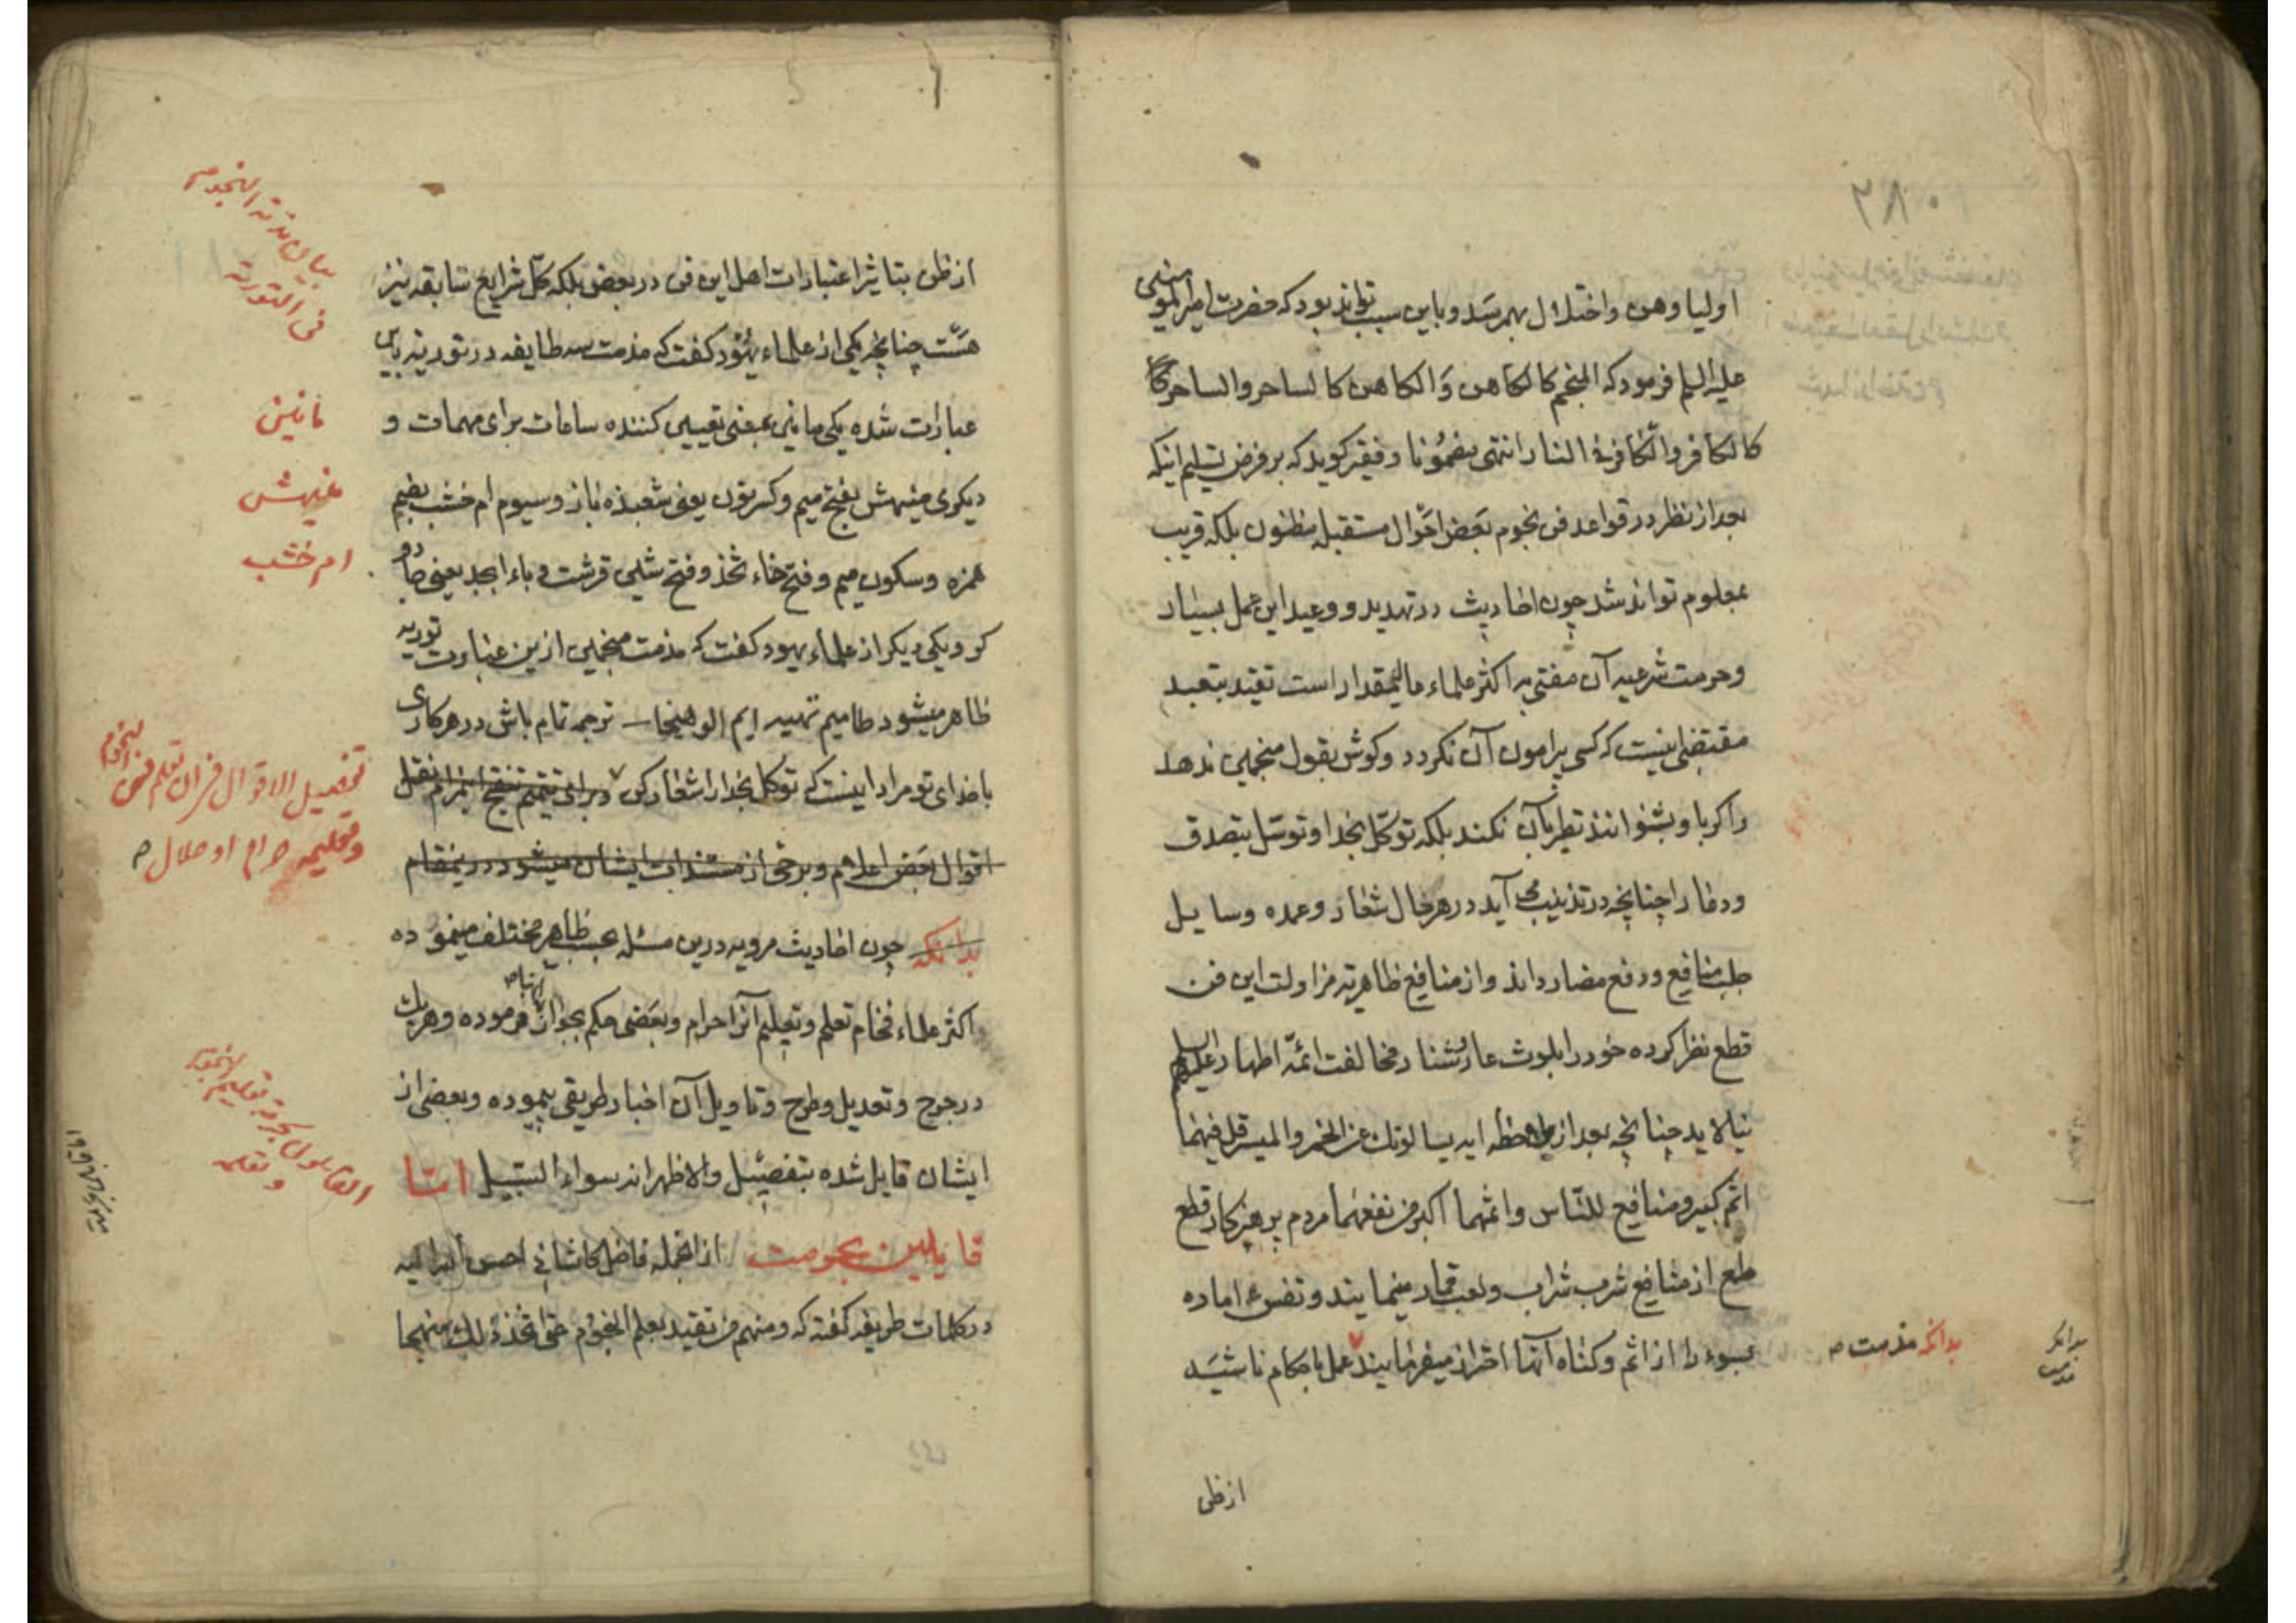 ۰۸۲
اولیا وهن واختلال بهمرسد وباین سبب تواند بود که حضرت امیرالمؤمنین
علیه السلم فرمود که المنجم کالکاهن وَالکاهن کالساحر والساحر
کالکافر والکافر فی النار انتهی بمضمُونا وفقیر کوید که بر فرض تسلیم اینکه
بعد از نظر در قواعد فن نجوم بَعض احوال مستقبله مظنون بلکه قریب
بمعلوم تواند شد چون احادیث در تهدید ووعید این عمل بسیار
وحرمت شرعیه آن مفتی به اکثر علماء عالیمقدار است تقید بتعبد
مقتضی اینست که کسی پیرامون آن نکردد وکوش بقول منجمین ندهد
واکر باو بشنوانند تطیر بآن نکند بلکه توکّل بخدا وتوسّل بتصدق
ودعا را چنانچه در تذنیب می آید در هر حال شعار وعمده وسایل
جلب منافع ودفع مضار داند واز منافع ظاهریّه مزاولت این فن
قطع نظر کرده خود را بلوث عار وشنار مخالفت ائمّه اطهار علیهم السلم
نیالاید چنانچه بعد از ملاحظه ایه یسالونک عن الخمر والمیسر قل فیهما
اثم کبیر ومنافع للنّاس واثمهما اکبر من نفعهما مردم پرهیزکار قطع
طمع از منافع شرب شراب ولعب قمار مینمایند ونفس اماره
بسوء را از اثم وکناه آنها احتراز میفرمایند عمل باحکام ناشیَه
بدانکه مذمت
بدانکه
مذمت
از ظن
از ظن بتاثیر اعتبارات اهل این فن در بعض بلکه کلّ شرایع سابقه نیز
هسّت چنانچه یکی از علماء یهُود کفت که مذمت سه طایفه در توریة باین
عبارت شده یکی مانین بمعنی تعیین کننده ساعات برای مهمات و
دیکری مینهش بفتح میم وکسر نون یعنی شعبده باز وسیوم ام خشب بضم
همزه وسکون میم وفتح خاء ثخذ وفتح شین قرشت وباء ابجد یعنی جادو
کر ویکی دیکر از علماء یهود کفت که مذمت منجمین ازین عبارت توریه
ظاهر میشود طامیم تهییه ایم الوهیخا ترجمه تمام باش در هر کاری
با خدای تو مراد اینست که توکل بخدا را شعار کن وبرای تتمیم تنقیح این مرام نقل
اقوال بعض اعلام وبرخی از مستندات ایشان میشود درینمقام
بدانکه چون احادیث مرویه درین مسئله بحسب ظاهر مختلف مینموده
اکثر علماء فخام تعلم وتعلیم آنرا حرام وبَعضی حکم بجواز فرموده وهریک
در جرح وتعدیل وطرح وتاویل آن اخبار طریقی پیموده وبعضی از
ایشان قایل شده بتفصیل والاظهر انه سواء السّبیل امّا
قایلین بحرمت از انجمله فاضل کاشانی احسن الله الیه
در کلمات طریفه کفته که ومنهم من تقید بعلم النجوُم حتی اتخذ ذلک منهجا
بیان مذمة النجوم
فی التوریة
مانین
مینهش
ام خشب
تفصیل الاقوال فی ان تعلم فن نجوم
وتعلیمه حرام او حلال
القایلون بحرمة تعلیم النجوم
وتعلمه